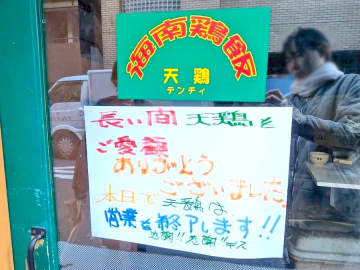 海南鶏飯
天鶏
テンディ
長い間 天鶏を
ご愛顧
ありがとう
ございました。
本日で 天鶏は
営業を終了します!!
感謝!! 感謝!!デス